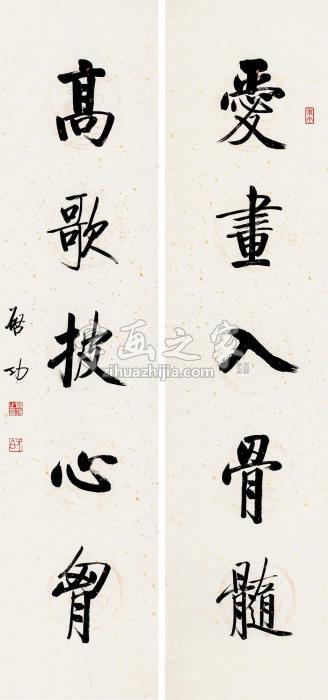 愛畫入骨髓
高歌披心胷
啓功
书画之家
zihuazhijia.com